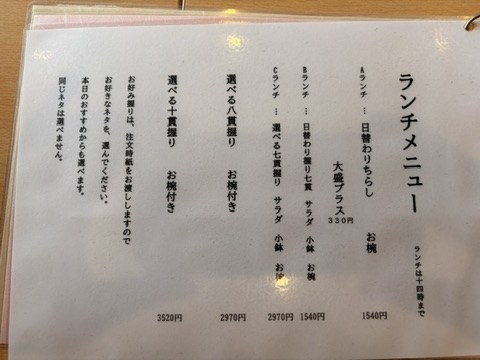 ランチメニュー
ランチは十四時まで
Aランチ … 日替わりちらし お椀 1540円
大盛プラス 330円
Bランチ … 日替わり握り七貫 サラダ 小鉢 お椀 1540円
Cランチ … 選べる七貫握り サラダ 小鉢 お椀 2970円
選べる八貫握り お椀付き 2970円
選べる十貫握り お椀付き 3520円
お好み握りは、注文時紙をお渡ししますので
お好きなネタを、選んでください。
本日のおすすめからも選べます。
同じネタは選べません。